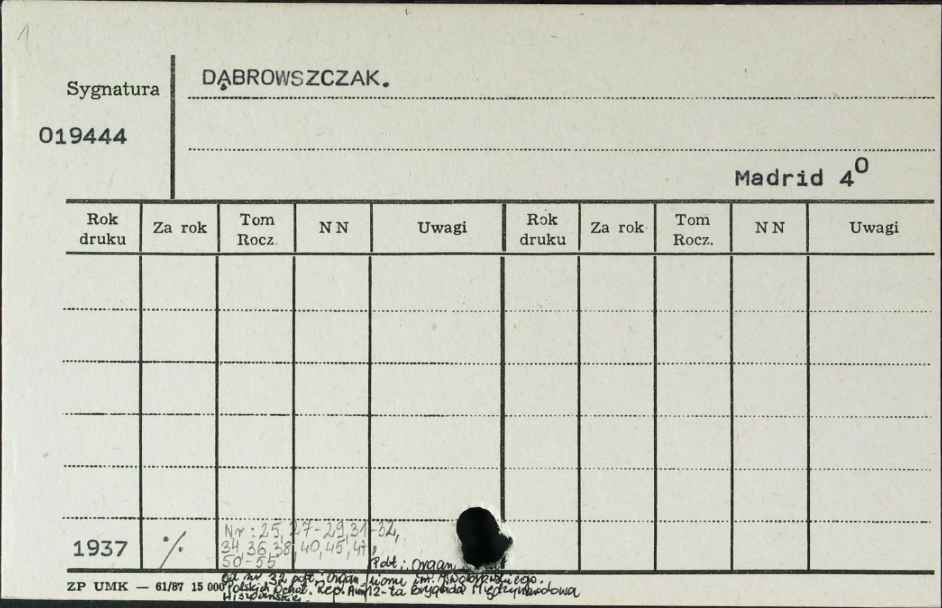 1
Sygnatura
DĄBROWSZCZAK.
019444
Madrid 4⁰
Rok druku Za rok Tom Rocz. NN Uwagi Rok druku Za rok Tom Rocz. NN Uwagi
Nr: 25, 27-29, 31-32,
1937 ·/. 34, 36, 38, 40, 45, 47,
50-55 Pdt.: Organ
ZP UMK — 61/87 15 000
Od nr 32 pdt.: Organ im.
Polskich Ochot. Rep. 12-ta Brygada Międzynarodowa